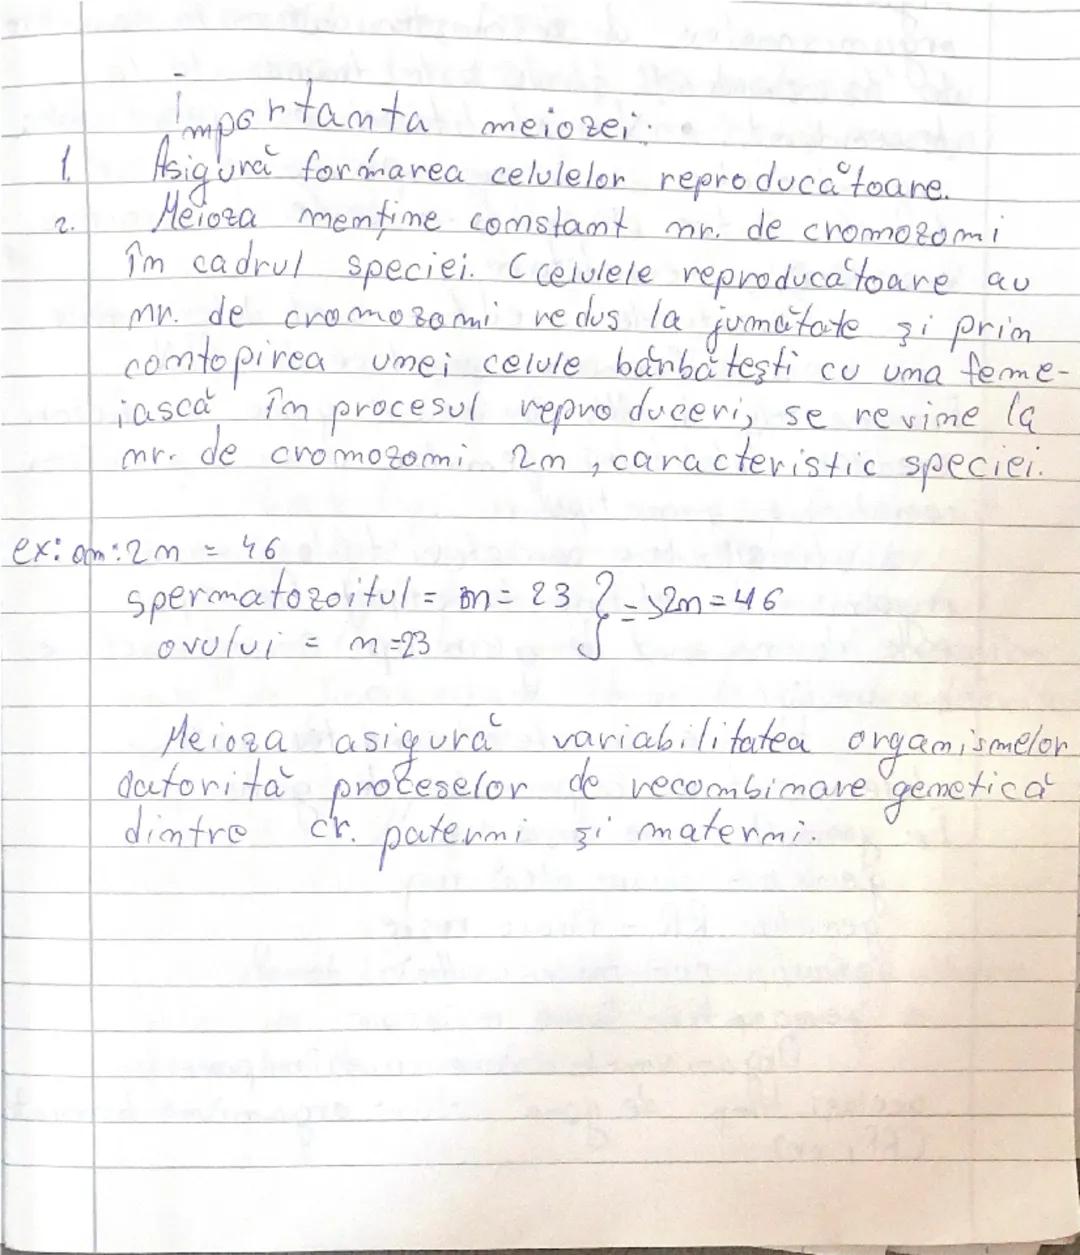 Importanta meiozei.
1. Asigură formarea celulelor reproducătoare.
2. Meioza menține constant nr. de cromozomi
în cadrul speciei. (celulele reproducătoare au
nr. de cromozomi redus la jumătate și prin
contopirea unei celule bărbătești cu una feme-
iască în procesul reproduceri, se revine la
nr. de cromozomi 2n, caracteristic speciei.
ex: om: 2n = 46
spermatozoitul = n = 23 } -> 2n = 46
ovului = n = 23
Meioza asigură variabilitatea organismelor
datorită proceselor de recombinare genetică
dintre cr. paterni și materni.